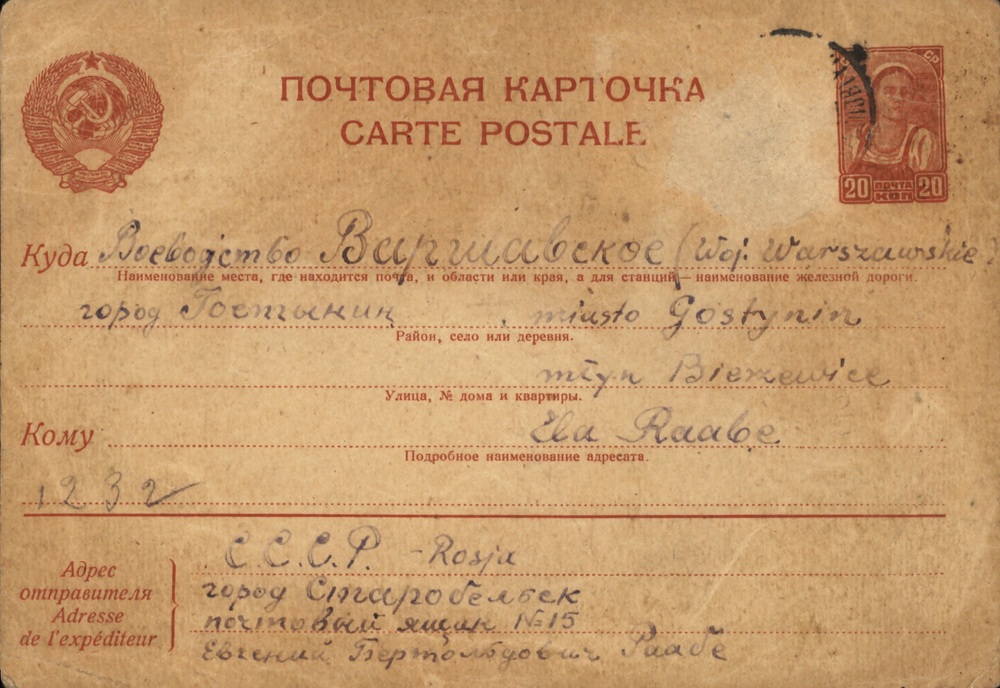 ПОЧТОВАЯ КАРТОЧКА
CARTE POSTALE
СР
20 ПОЧТА КОП 20
Куда Воеводство Варшавское (Woj. Warszawskie)
Наименование места, где находится почта, и области или края, а для станций — наименование железной дороги.
город Гостынин, miasto Gostynin
Район, село или деревня.
młyn Bierzewice
Улица, № дома и квартиры.
Кому Ela Raabe
Подробное наименование адресата.
1232
С.С.С.Р. - Rosja
Адрес отправителя
Adresse de l'expéditeur
город Старобельск
почтовый ящик №15
Евгений Бертольдович Раабе